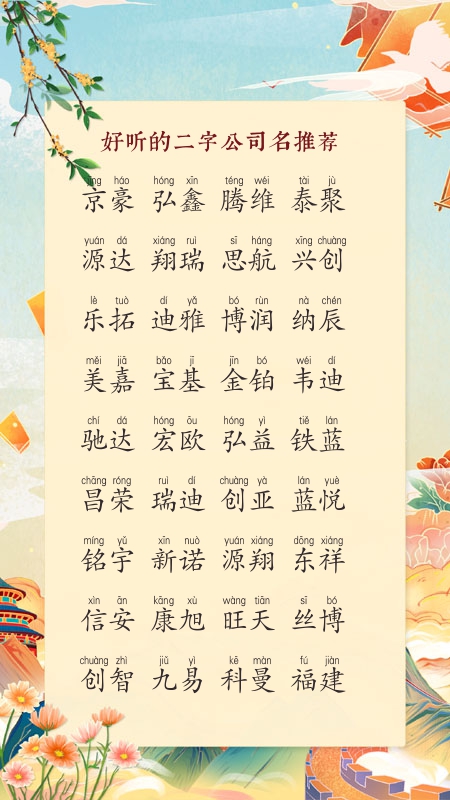 好听的二字公司名推荐
jīng háo hóng xīn téng wéi tài jù
京豪 弘鑫 腾维 泰聚
yuán dá xiáng ruì sī háng xīng chuàng
源达 翔瑞 思航 兴创
lè tuò dí yǎ bó rùn nà chén
乐拓 迪雅 博润 纳辰
měi jiā bǎo jī jīn bó wéi dí
美嘉 宝基 金铂 韦迪
chí dá hóng ōu hóng yì tiě lán
驰达 宏欧 弘益 铁蓝
chāng róng ruì dí chuàng yà lán yuè
昌荣 瑞迪 创亚 蓝悦
míng yǔ xīn nuò yuán xiáng dōng xiáng
铭宇 新诺 源翔 东祥
xìn ān kāng xù wàng tiān sī bó
信安 康旭 旺天 丝博
chuàng zhì jiǔ yì kē màn fú jiàn
创智 九易 科曼 福建